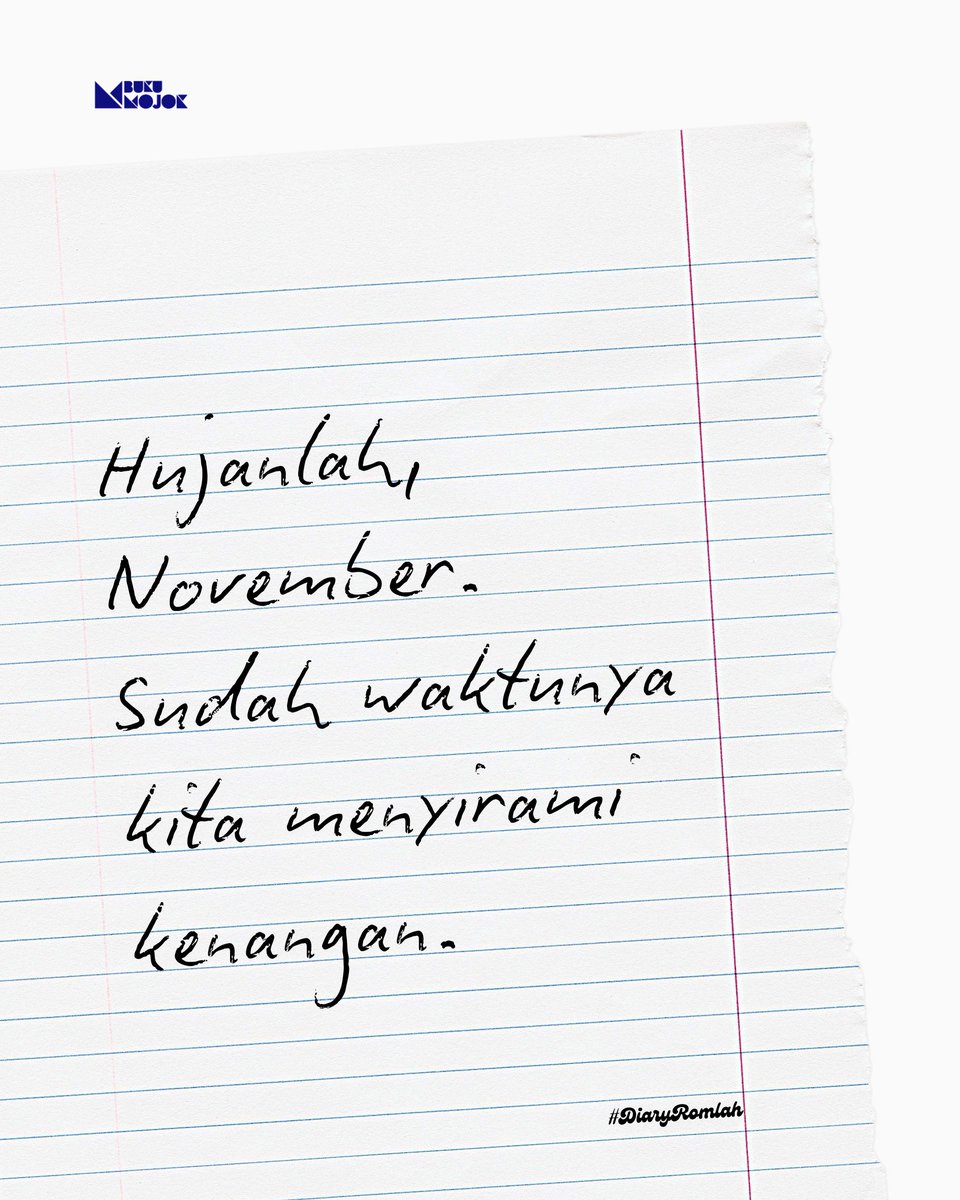 BUKU
MOJOK
Hujanlah,
November.
Sudah waktunya
kita menyirami
kenangan.
#DiaryRomlah